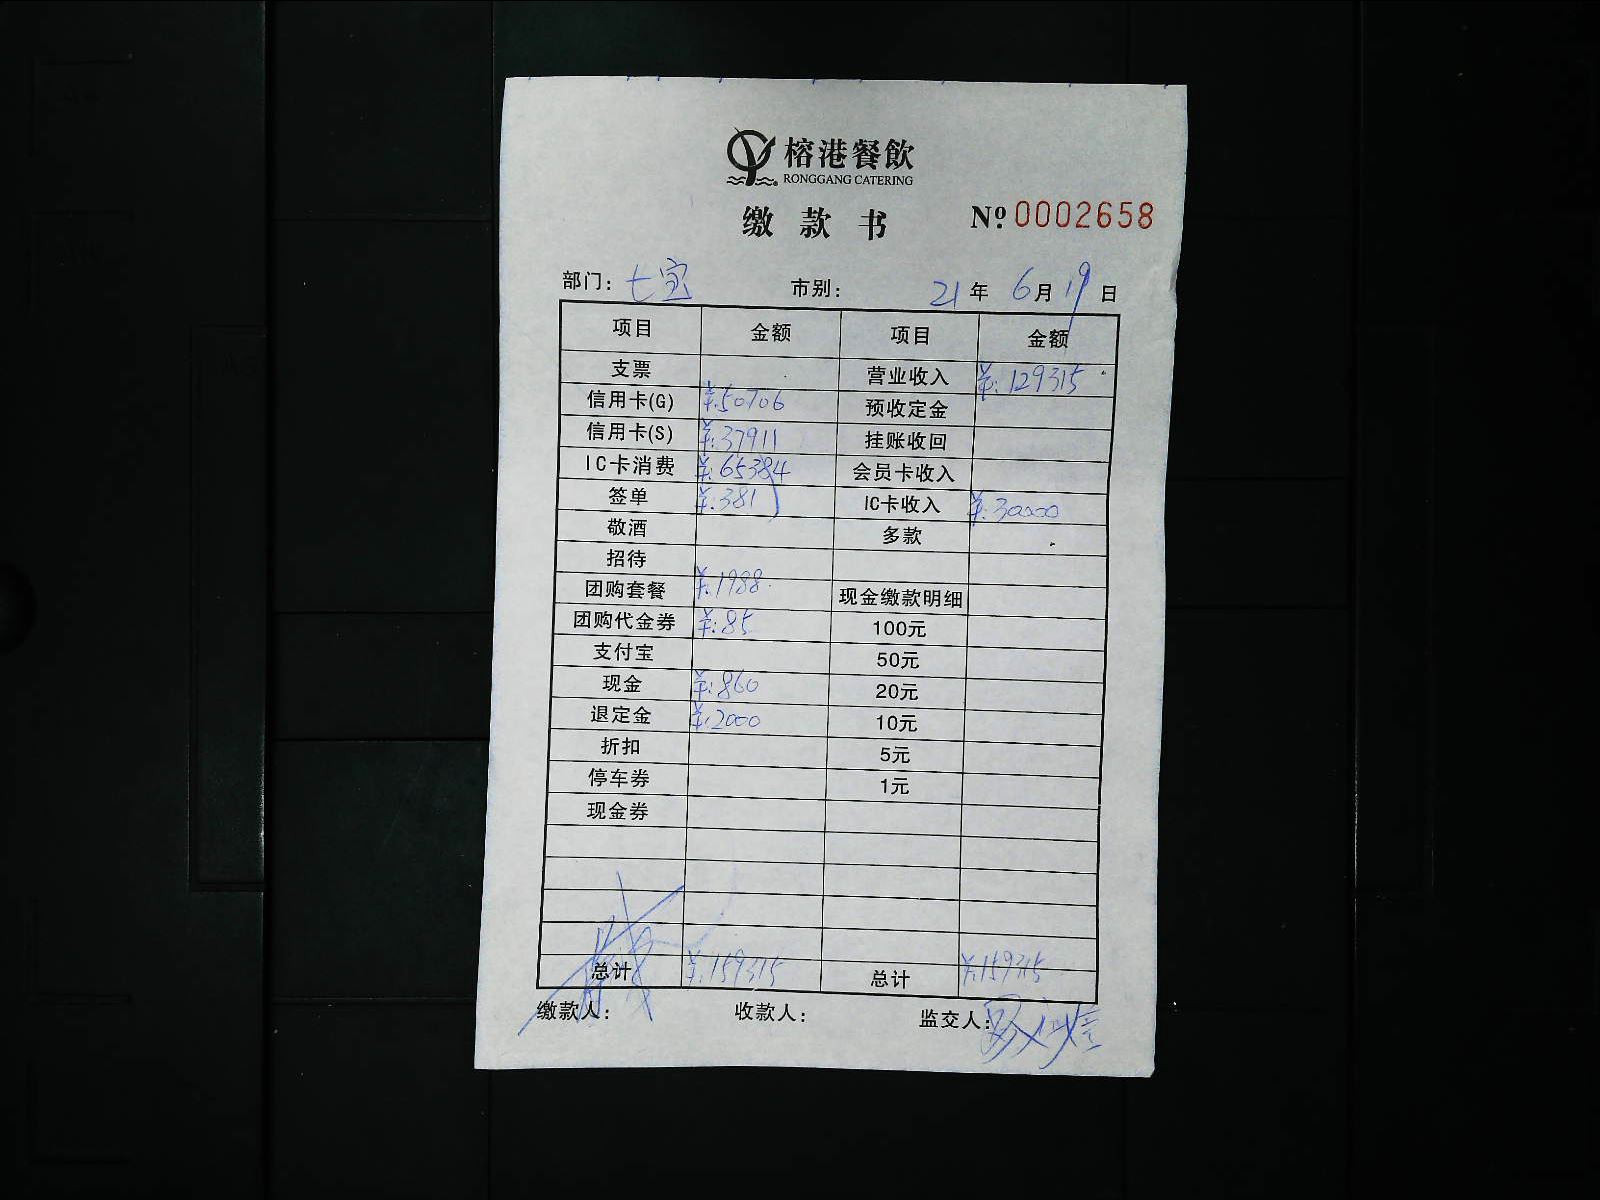 榕港餐飲
RONGGANG CATERING
缴款书 Nº 0002658
部门: 七宝 市别: 21年 6月19日
项目 金额 项目 金额
支票 营业收入 ¥:129315
信用卡(G) ¥:50706 预收定金
信用卡(S) ¥:37911 挂账收回
IC卡消费 ¥:65384 会员卡收入
签单 ¥:381 IC卡收入 ¥:30000
敬酒 多款
招待
团购套餐 ¥:1988 现金缴款明细
团购代金券 ¥:85 100元
支付宝 50元
现金 ¥:860 20元
退定金 ¥:2000 10元
折扣 5元
停车券 1元
现金券
总计 ¥:159315 总计 ¥:159315
缴款人: 收款人: 监交人: